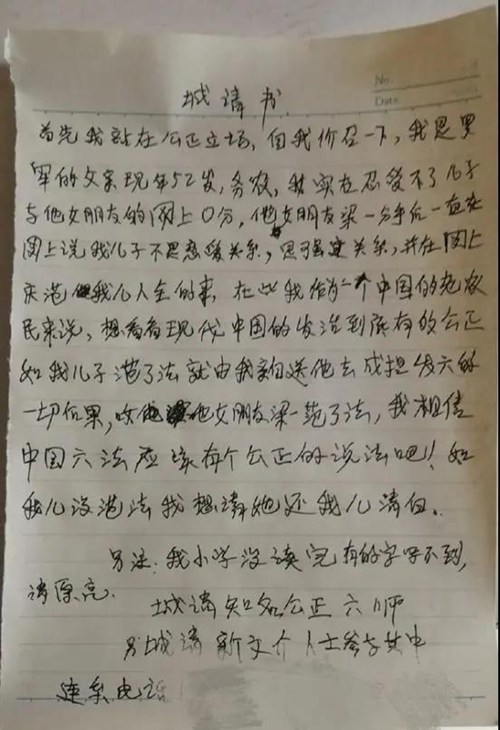 No.
Date
城请书
首先我站在公正立场,自我价召一下,我是黑
军的父亲现年52岁,务农,我实在忍受不了儿子
与他女朋友的网上
女朋友梁一分手后一直在
网上说我儿子不是恋爱关系,
关系,并在网上
我儿人全的事,在此我作为一个中国的老农
民来说,想看看现代中国的发治到底有的公正
如我儿子范了法就由我亲自送他去成担发六的
一切后果,
他女朋友梁一范了法,我相信
中国六法应该有个公正的说法吧!如
我儿没范法我想请她还我儿清白.
另注:我小学没读完有的字写不到,
请原亮.
城请知名公正六师
另城请新文介人士参与其中
连系电话